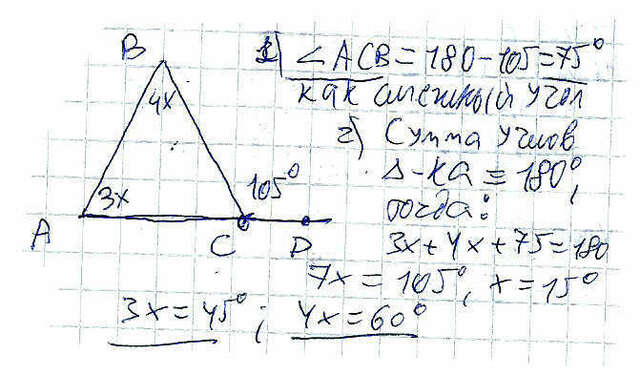 B
4x
3x
105°
A
C
D
1) ∠ACB=180-105=75°
как смежный угол
2) Сумма углов
Δ-ка = 180°,
тогда:
3x+4x+75=180
7x = 105°, x=15°
3x=45°; 4x=60°